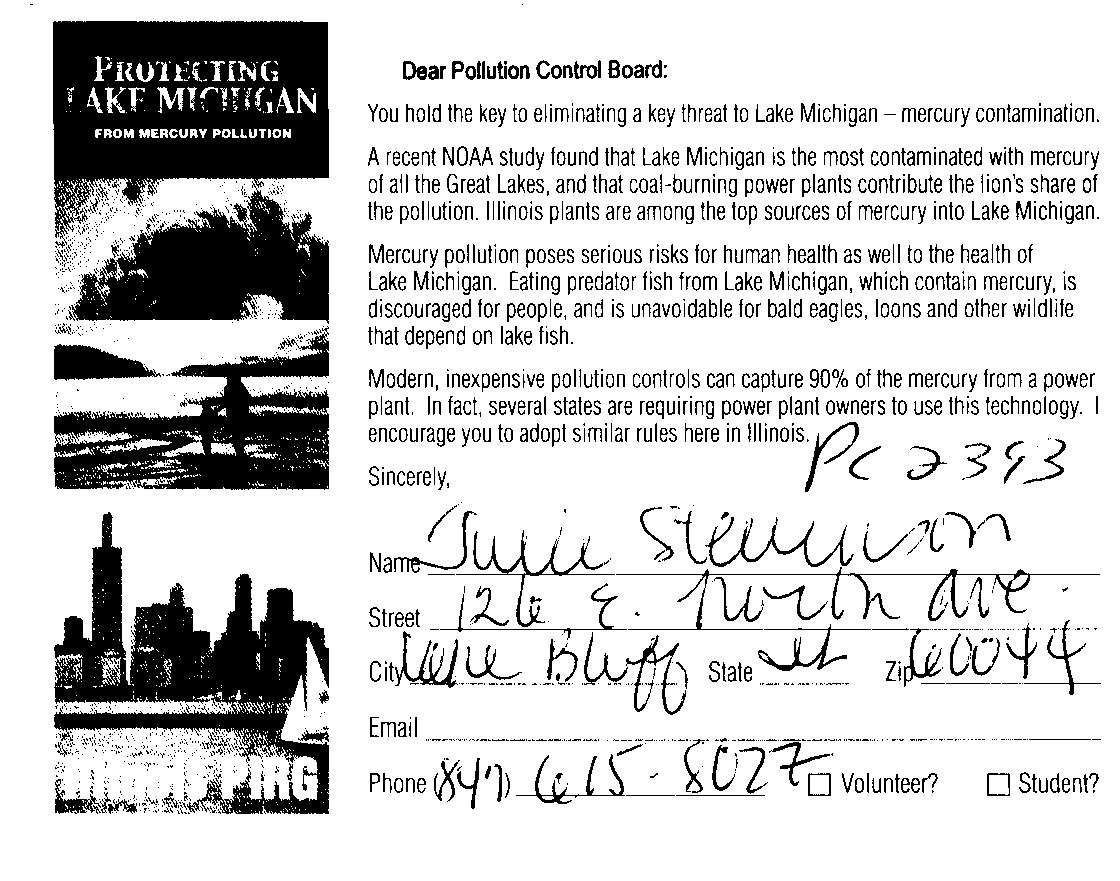 PROTECTING
LAKE MICHIGAN
FROM MERCURY POLLUTION
Illinois PIRG
Dear Pollution Control Board:
You hold the key to eliminating a key threat to Lake Michigan – mercury contamination.
A recent NOAA study found that Lake Michigan is the most contaminated with mercury
of all the Great Lakes, and that coal-burning power plants contribute the lion's share of
the pollution. Illinois plants are among the top sources of mercury into Lake Michigan.
Mercury pollution poses serious risks for human health as well to the health of
Lake Michigan. Eating predator fish from Lake Michigan, which contain mercury, is
discouraged for people, and is unavoidable for bald eagles, loons and other wildlife
that depend on lake fish.
Modern, inexpensive pollution controls can capture 90% of the mercury from a power
plant. In fact, several states are requiring power plant owners to use this technology. I
encourage you to adopt similar rules here in Illinois.
PC 2393
Sincerely,
Name Julie Stevenson
Street 126 E. North Ave.
City Lake Bluff State Il Zip 60044
Email
Phone (847) 615-8027 Volunteer? Student?